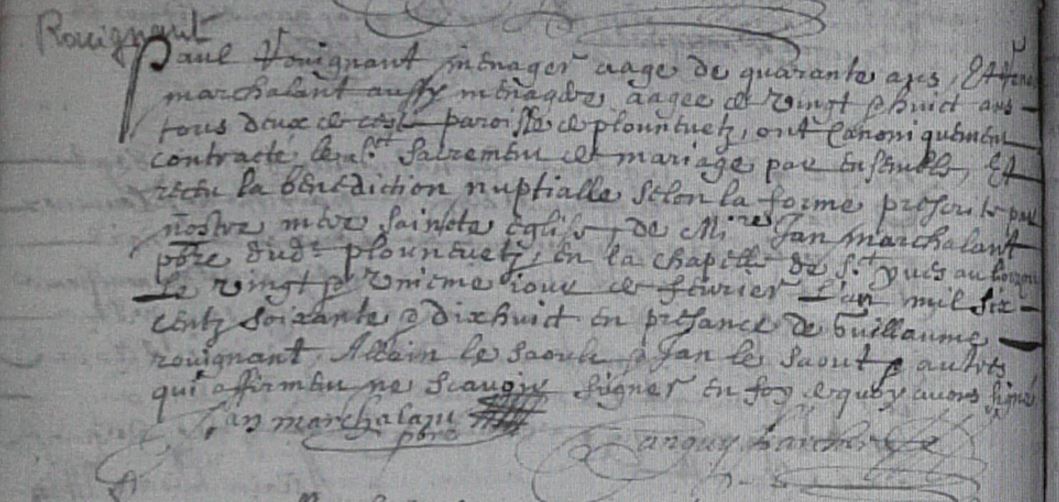 Rouignant
Paul Rouignant menager aage de quarante ans, Et
marchalant aussy menagere aagee de vingt & huict ans
tous deux de ceste paroisse de plouneuetz, ont Canoniquement
contracté le st sacrement de mariage par Ensemble, Et
receu la benediction nuptialle selon la forme prescrite par
nostre mere saincte eglise, de Mire Jan marchalant
pbre dudt plouneuetz, en la chapelle de St yues au
Le vingt & vnieme iour de feurier L'an mil six
centz soixante & dixhuict en presance de Guillaume
rouignant, Allain le saout & Jan le saout & autres
qui affirment ne scauoir signer en foy de quoy auons signé
Jan marchalant
pbre
Tanguy